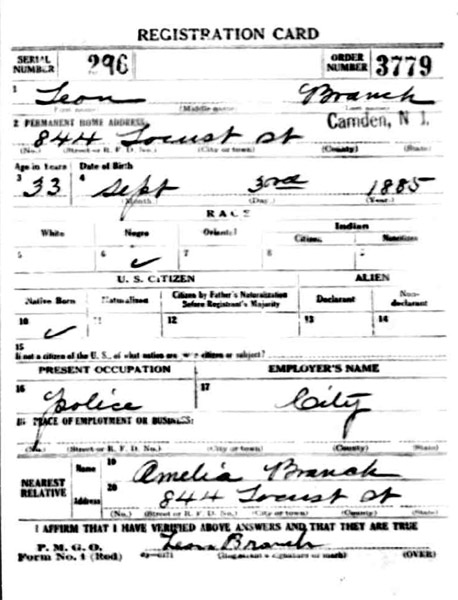 REGISTRATION CARD
SERIAL NUMBER 296 ORDER NUMBER 3779
1 Leon Branch
(First name) (Middle name) (Last name)
2 PERMANENT HOME ADDRESS:
844 Locust St Camden, N J.
(No.) (Street or R. F. D. No.) (City or town) (County) (State)
Age in Years Date of Birth
3 33 4 Sept 3rd 1885
(Month.) (Day.) (Year.)
RACE
White Negro Oriental Indian
Citizen Noncitizen
5 6 ✓ 7 8 9
U. S. CITIZEN ALIEN
Native Born Naturalized Citizen by Father's Naturalization Before Registrant's Majority Declarant Non-declarant
10 ✓ 11 12 13 14
15
If not a citizen of the U. S., of what nation are you a citizen or subject?
PRESENT OCCUPATION EMPLOYER'S NAME
16 Police 17 City
18 PLACE OF EMPLOYMENT OR BUSINESS:
(No.) (Street or R. F. D. No.) (City or town) (County) (State)
NEAREST RELATIVE Name 19 Amelia Branch
Address 20 844 Locust St
(No.) (Street or R. F. D. No.) (City or town) (County) (State)
I AFFIRM THAT I HAVE VERIFIED ABOVE ANSWERS AND THAT THEY ARE TRUE
P. M. G. O.
Form No. 1 (Red) Leon Branch
(Registrant's signature or mark) (OVER)